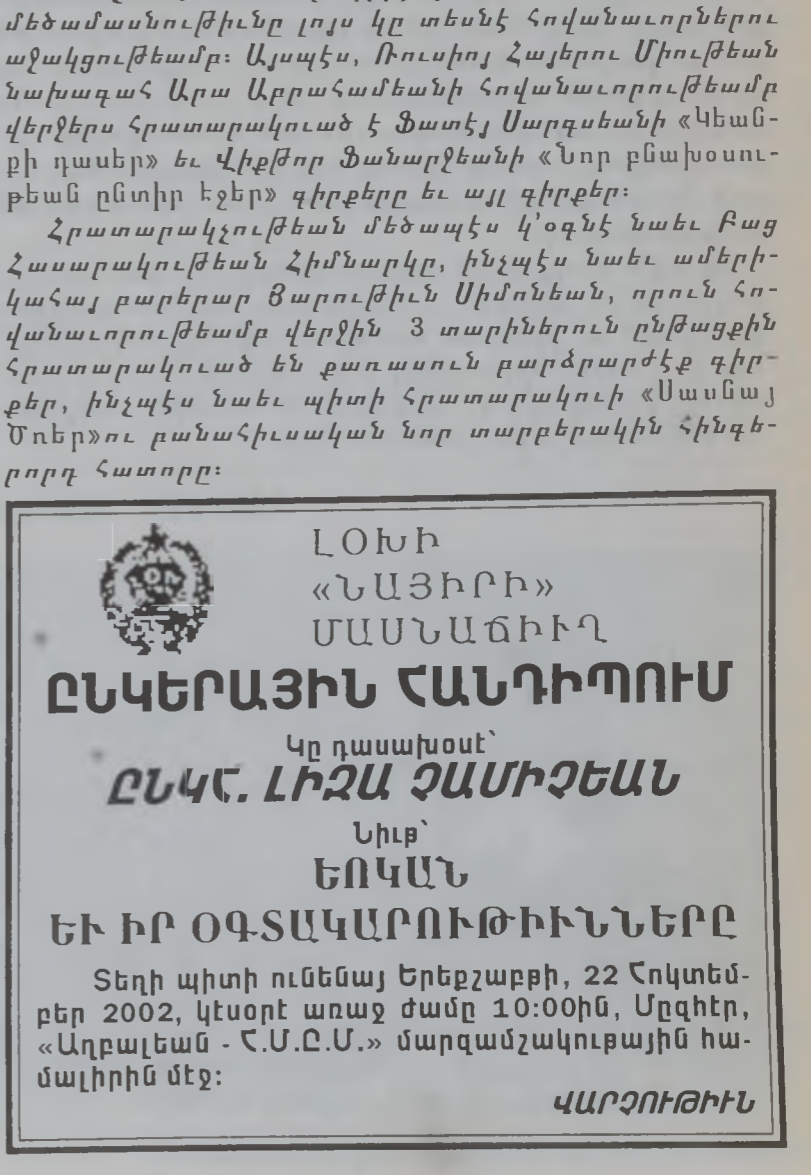 մեծամասնութիւնը լոյս կը տեսնէ հովանաւորներու
աջակցութեամբ։ Այսպէս, Ռուսիոյ Հայերու Միութեան
նախագահ Արա Աբրահամեանի հովանաւորութեամբ
վերջերս հրատարակուած է Ֆատէյ Սարգսեանի «Կեան-
քի դասեր» եւ Վիքթոր Ֆանարջեանի «Նոր բնախօսու-
թեան ընտիր էջեր» գիրքերը եւ այլ գիրքեր։
Հրատարակչութեան մեծապէս կ՚օգնէ նաեւ Բաց
Հասարակութեան Հիմնարկը, ինչպէս նաեւ ամերի-
կահայ բարերար Յարութիւն Սիմոնեան, որուն հո-
վանաւորութեամբ վերջին 3 տարիներուն ընթացքին
հրատարակուած են քառասուն բարձրարժէք գիր-
քեր, ինչպէս նաեւ պիտի հրատարակուի «Սասնայ
Ծռեր»ու բանահիւսական նոր տարբերակին հինգե-
րորդ հատորը։
ԼՕԽԻ
«ՆԱՅԻՐԻ»
ՄԱՍՆԱՃԻՒՂ
ԸՆԿԵՐԱՅԻՆ ՀԱՆԴԻՊՈՒՄ
Կը դասախօսէ՝
ԸՆԿՀ. ԼԻԶԱ ՉԱՄԻՉԵԱՆ
Նիւթ՝
ԵՈԿԱՆ
ԵՒ ԻՐ ՕԳՏԱԿԱՐՈՒԹԻՒՆՆԵՐԸ
Տեղի պիտի ունենայ Երեքշաբթի, 22 Հոկտեմ-
բեր 2002, կէսօրէ առաջ ժամը 10:00ին, Մըզհէր,
«Աղբալեան - Հ.Մ.Ը.Մ.» մարզամշակութային հա-
մալիրին մէջ։
ՎԱՐՉՈՒԹԻՒՆ